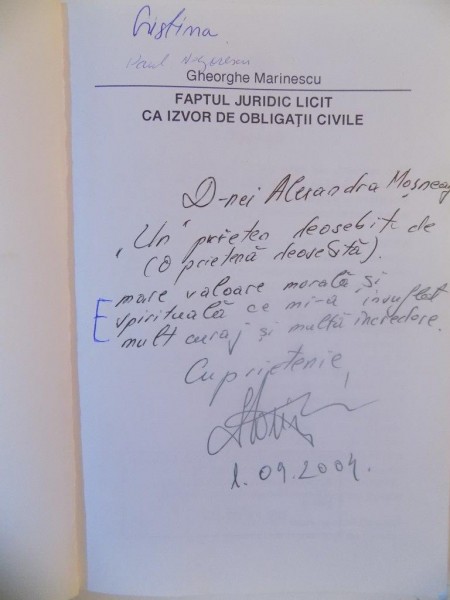 Cristina
Paul
Gheorghe Marinescu
FAPTUL JURIDIC LICIT
CA IZVOR DE OBLIGAȚII CIVILE
D-nei Alexandra Moșneag
„Un" prieten deosebit de
(o prietenă deosebită).
mare valoare morală și
spirituală ce mi-a insuflat
mult curaj și multă încredere.
Cu prietenie,
1.09.2004.